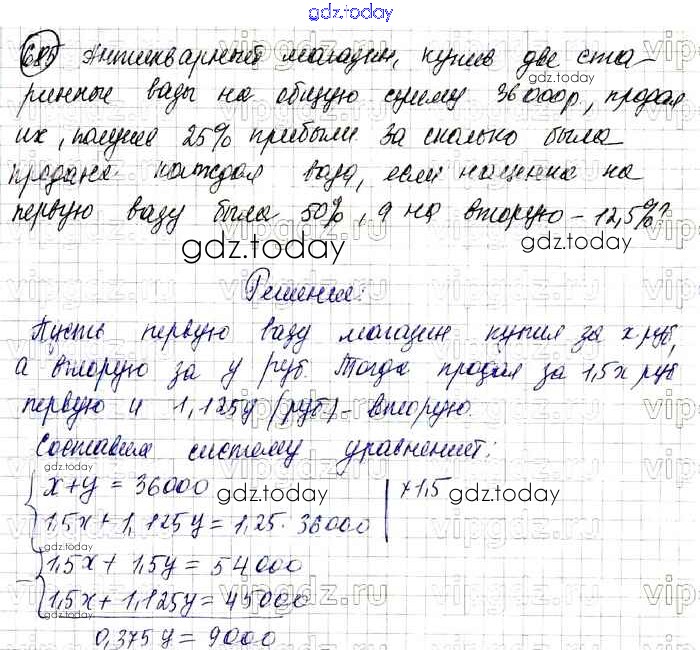 gdz.today
685 Антикварный магазин, купив две ста-
ринные вазы на общую сумму 36000р, продал
их, получив 25% прибыли За сколько была
продана каждая ваза, если наценка на
первую вазу была 50%, а на вторую - 12,5%?
gdz.today
Решение:
Пусть первую вазу магазин купил за x руб,
а вторую за y руб. Тогда продал за 1,5x руб
первую и 1,125y (руб) - вторую.
Составим систему уравнений:
x+y = 36000 | × 1,5
1,5x + 1,125y = 1,25 · 36000
1,5x + 1,5y = 54000
1,5x + 1,125y = 45000
0,375y = 9000